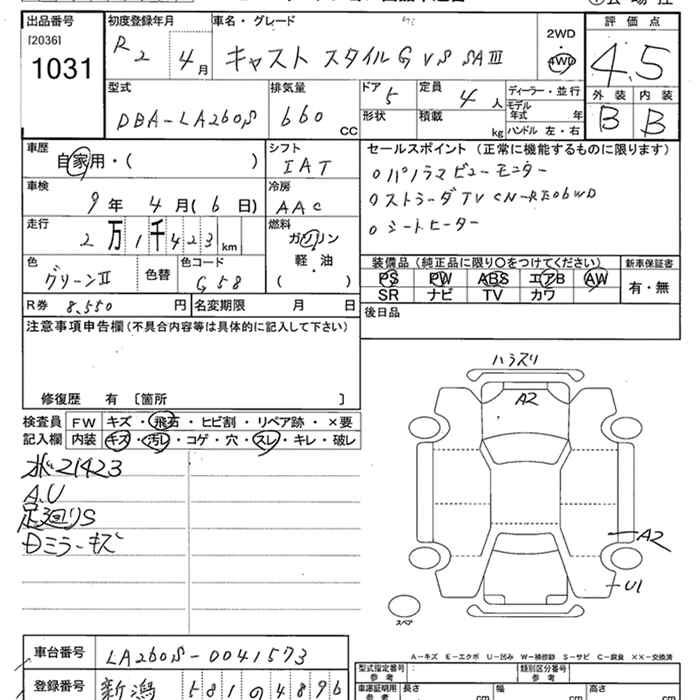 出品番号 初度登録年月 車名・グレード
[2036]
1031 R2 4月 キャスト スタイルG VS SAⅢ 2WD 4WD 評価点 4.5
外装 内装
B B
型式 排気量 ドア 定員 ディーラー・並行
DBA-LA260S 660 CC 5 4人 モデル年式 年
形状 積載 kg ハンドル 左・右
車歴 シフト セールスポイント (正常に機能するものに限ります)
自家用・( ) IAT ○パノラマビューモニター
車検 冷房 ○ストラーダTV CN-RE06WD
9年 4月(6日) AAC ○シートヒーター
走行 燃料
2万1千423km ガソリン
軽・油
( )
色 色替 色コード 装備品(純正品に限り○をつけてください) 新車保証書
グリーンⅡ G58 PS PW ABS エアB AW 有・無
SR ナビ TV カワ
R券 8,550円 名変期限 月 日 後日品
注意事項申告欄(不具合内容等は具体的に記入して下さい)
修復歴 有 [箇所 ]
検査員 FW キズ・飛石・ヒビ割・リペア跡・×要
記入欄 内装 キズ・汚レ・コゲ・穴・スレ・キレ・破レ
水21423
A.U
足廻りS
Dミラーキズ
ハラスリ
A2
A2
U1
スペア
A-キズ E-エクボ U-凹み W-補修跡 S-サビ C-腐食 XX-交換済
車台番号 LA260S-0041573
型式指定番号 類別区分番号
登録番号 新潟 581 の 4896
車庫証明用 参考 長さ cm 幅 cm 高さ cm